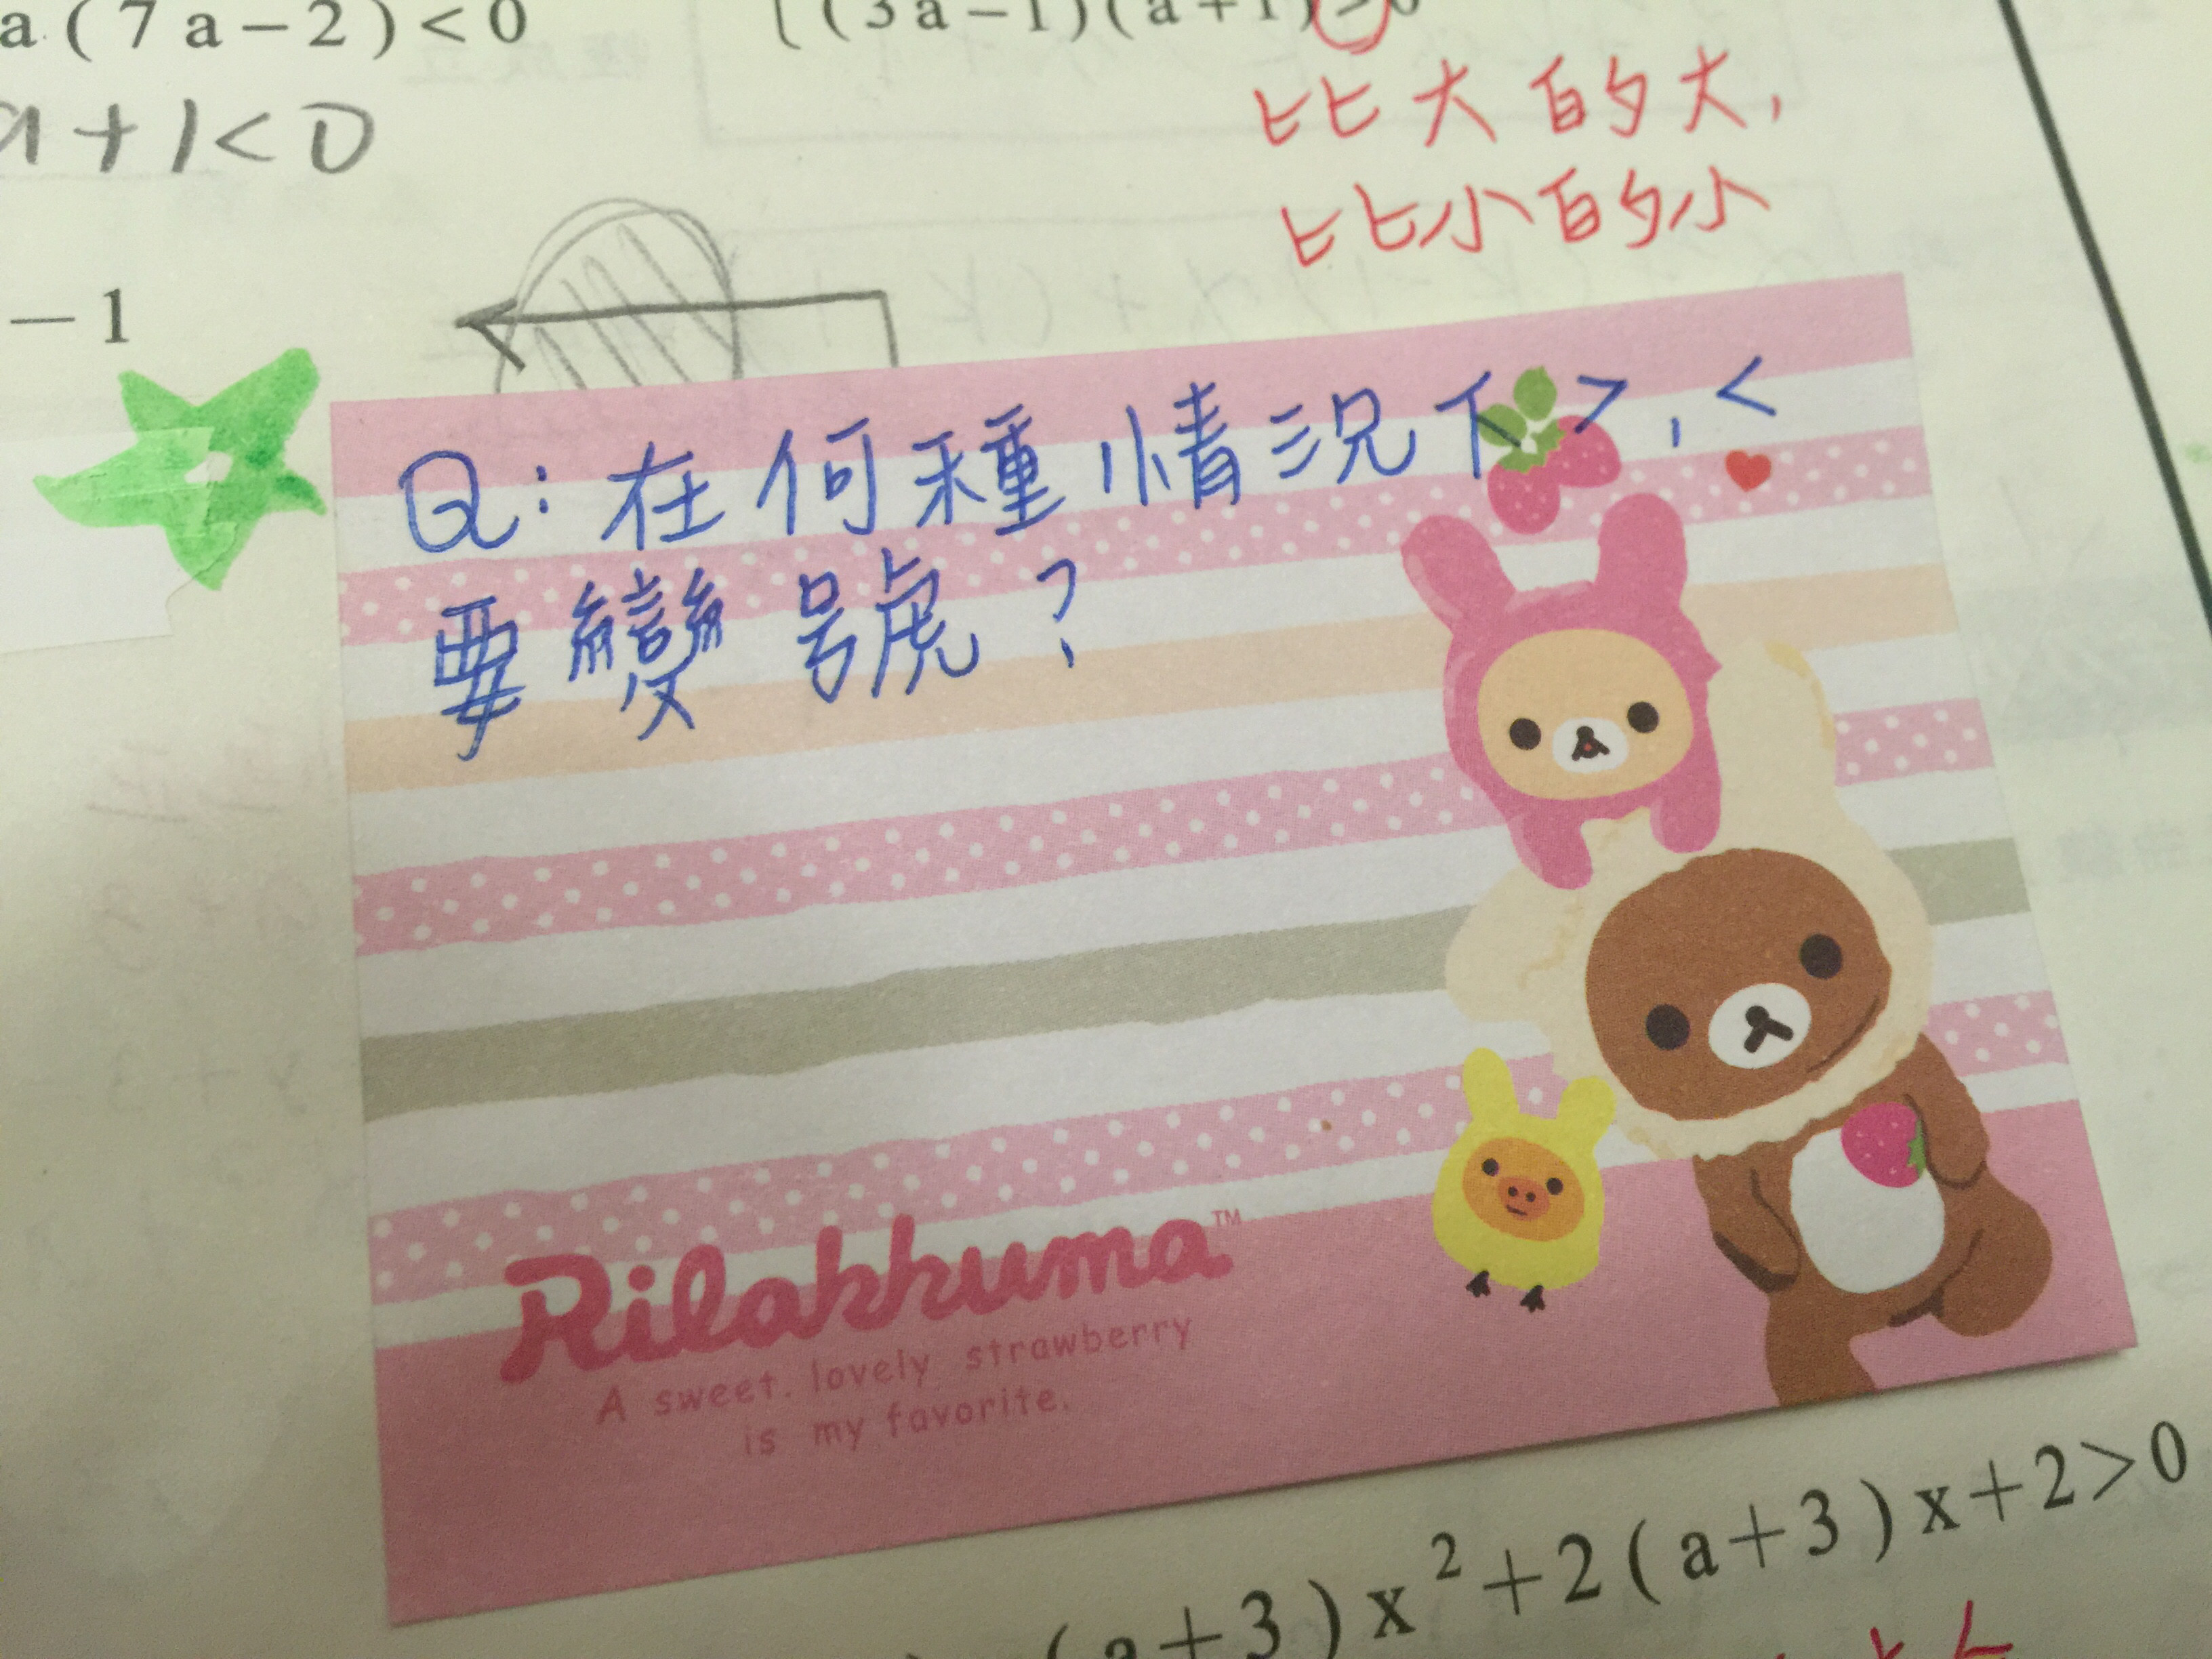 a(7a-2)<0
(3a-1)(a+1)>0
a+1<0
比大的大,
比小的小
-1
Q:在何種情況下>,<
要變號?
Rilakkuma™
A sweet. lovely strawberry
is my favorite.
(a+3)x²+2(a+3)x+2>0